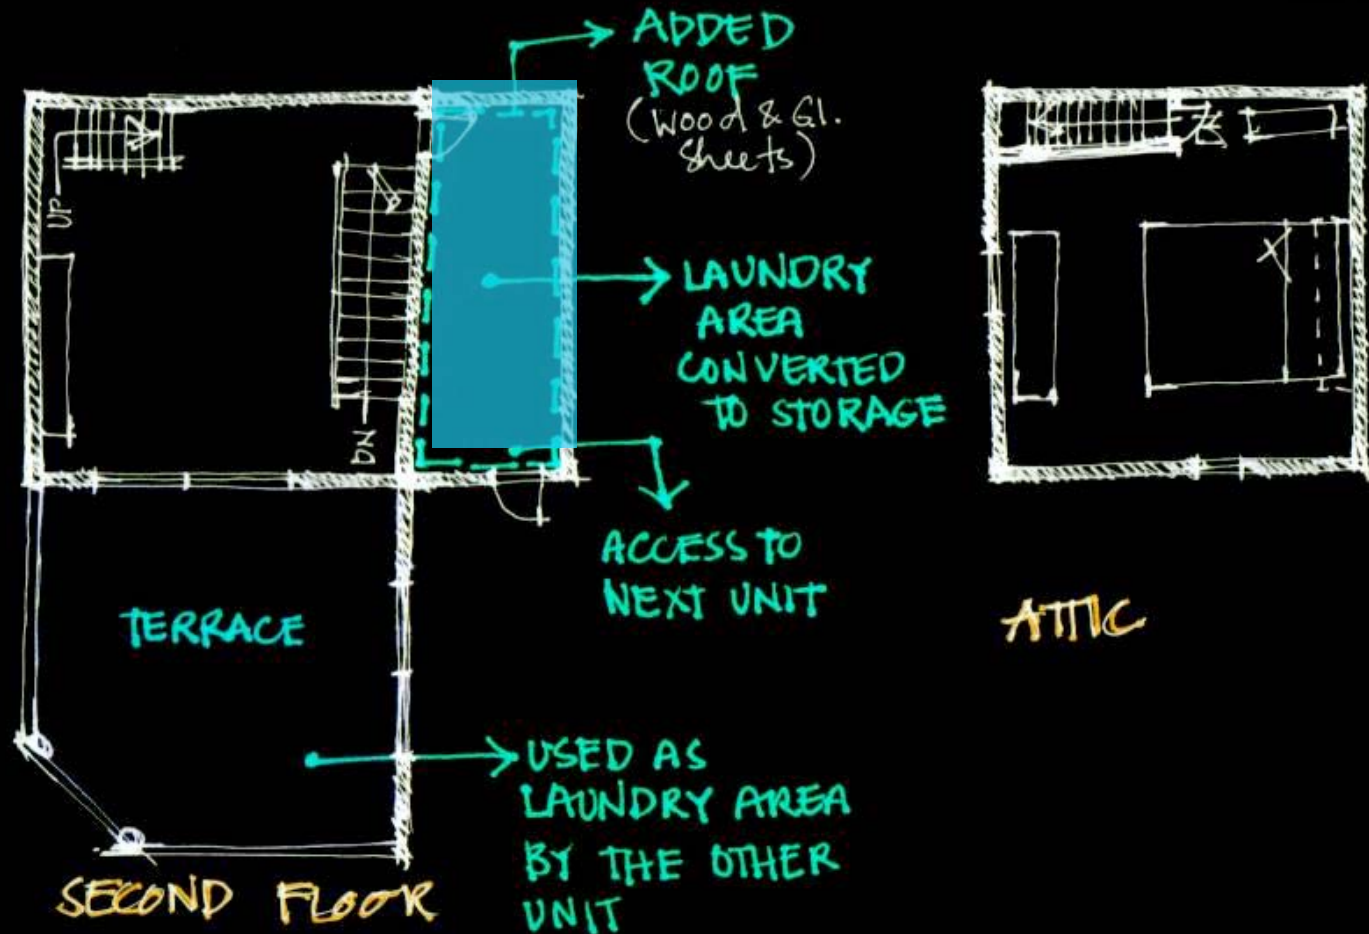 ADDED
ROOF
(Wood & GI.
Sheets)
UP
LAUNDRY
AREA
CONVERTED
TO STORAGE
DN
ACCESS TO
NEXT UNIT
TERRACE
ATTIC
USED AS
LAUNDRY AREA
BY THE OTHER
UNIT
SECOND FLOOR